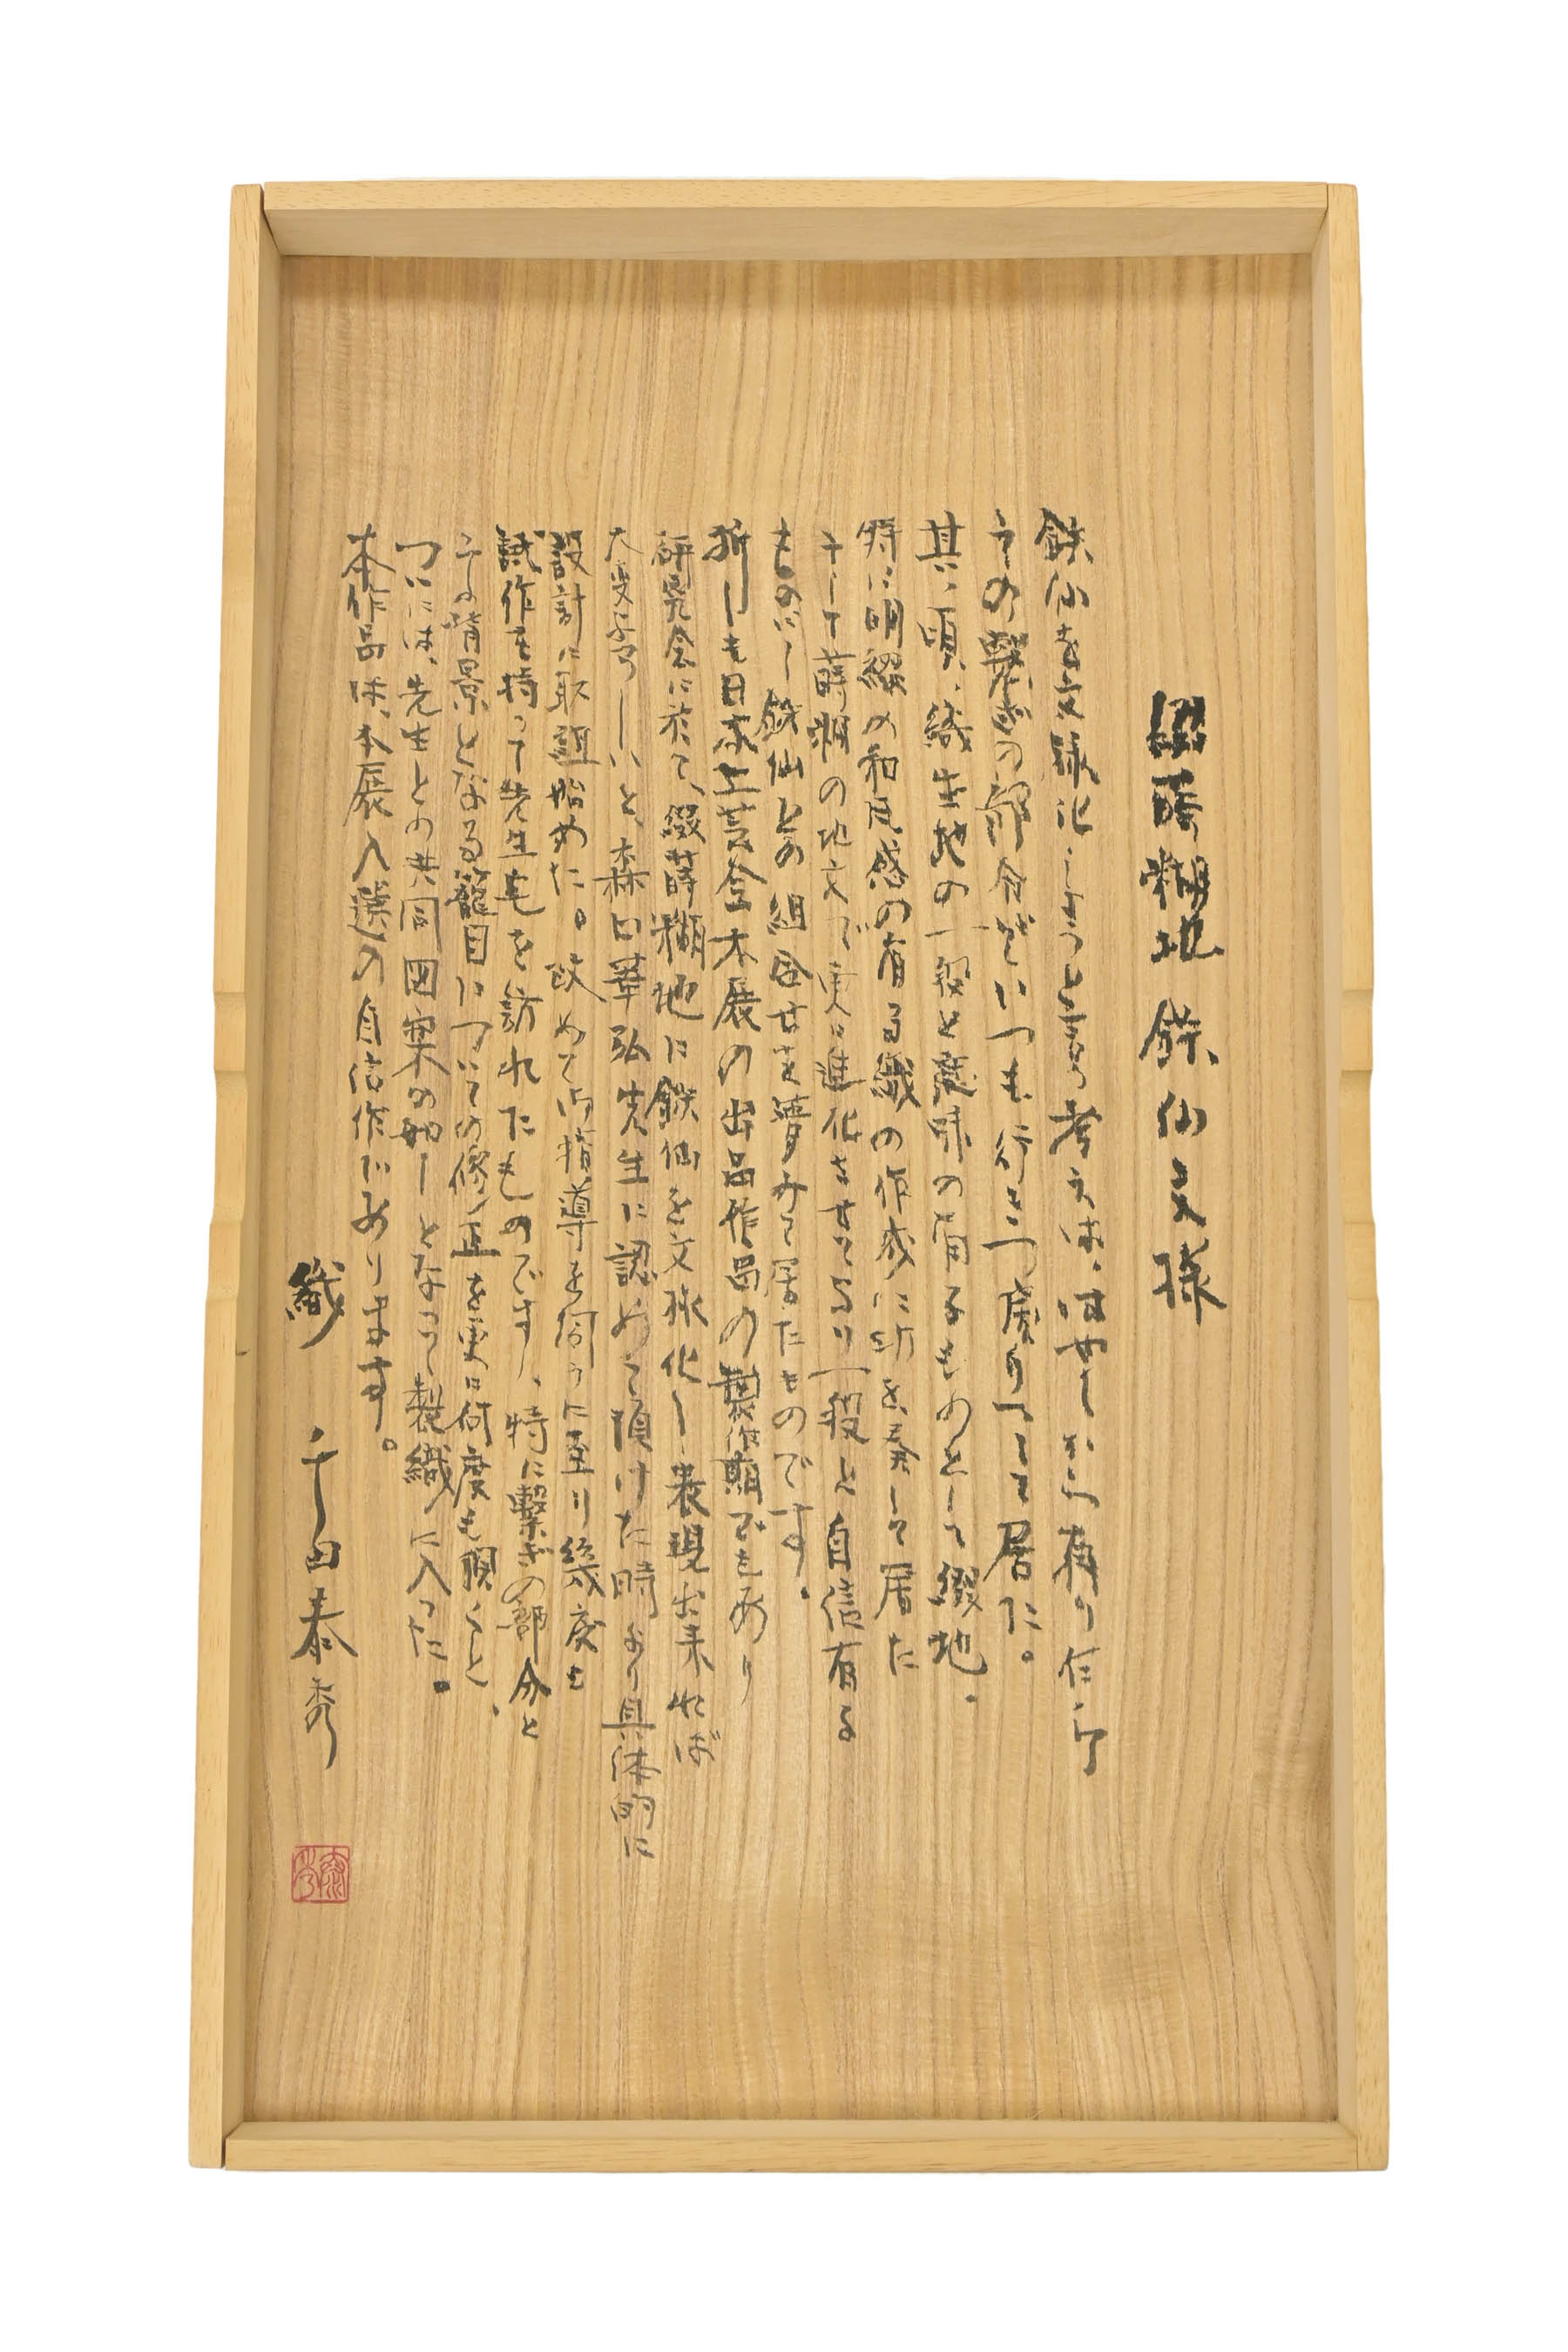 綴蒔糊地 鉄仙文様
鉄仙を文様化しようと言う考えは、昔しから有り作ろう
その繋ぎの部分でいつも行きつ戻りつして居た。
其の頃、織生地の一段と意味の有るものとして綴地。
特に明綴の和风感の有る織の作成に功を奏して居た
そして蒔糊の地文で更に進化させており一段と自信有る
ものにし鉄仙との組合せを夢みて居たものです。
折しも日本工芸会本展の出品作品の製作期でもあり
研究会に於て、綴蒔糊地に鉄仙を文様化し表現出来れば
大変よろしいと、森口華弘先生に認めて頂けた時より具体的に
設計に取組始めた。改めて御指導を伺うに至り幾度も
試作を持って先生宅を訪れたものですし、特に繋ぎの部分と
その背景となる籠目についての修正を更に何度も頂くと、
ついには、先生との共同図案の如しとなって製織に入った。
本作品は、本展入選の自信作であります。
織 千田泰秀